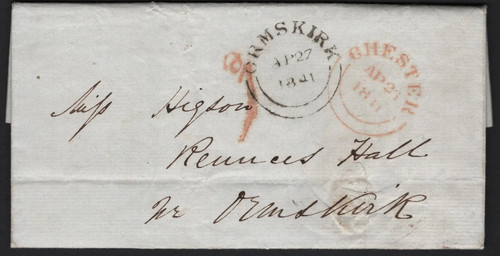 ORMSKIRK
AP 27
1841
CHESTER
AP 2
Miss Higson
Rennces Hall
nr Ormskirk